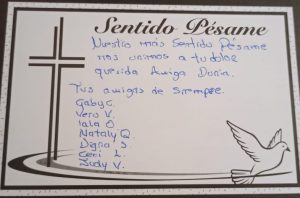 Sentido Pésame
Nuestro más Sentido Pésame
nos unimos a tu dolor
querida Amiga Doria.
Tus amigas de siempre.
Gaby C.
Vero V.
Lala O
Nataly Q.
Digna S.
Ceci L.
Judy V.